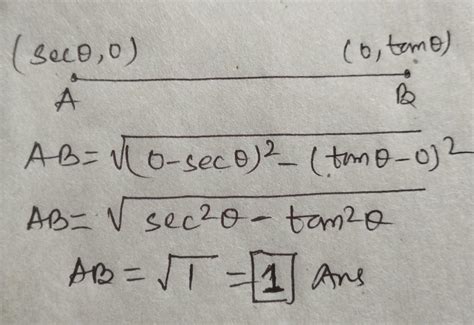 (secθ, 0) (0, tanθ)
A B
AB = √(0-secθ)² - (tanθ-0)²
AB = √sec²θ - tan²θ
AB = √1 = 1 Ans